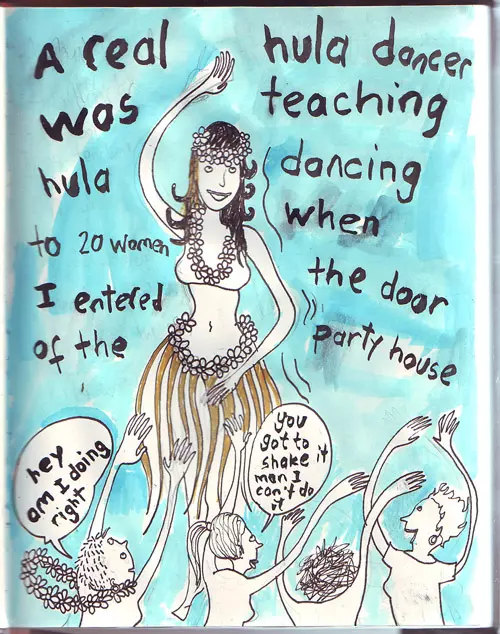 A real hula dancer
was teaching
hula dancing
to 20 women when
I entered the door
of the party house
hey
am I doing
right
you
got to
shake it
man I
can't do
it